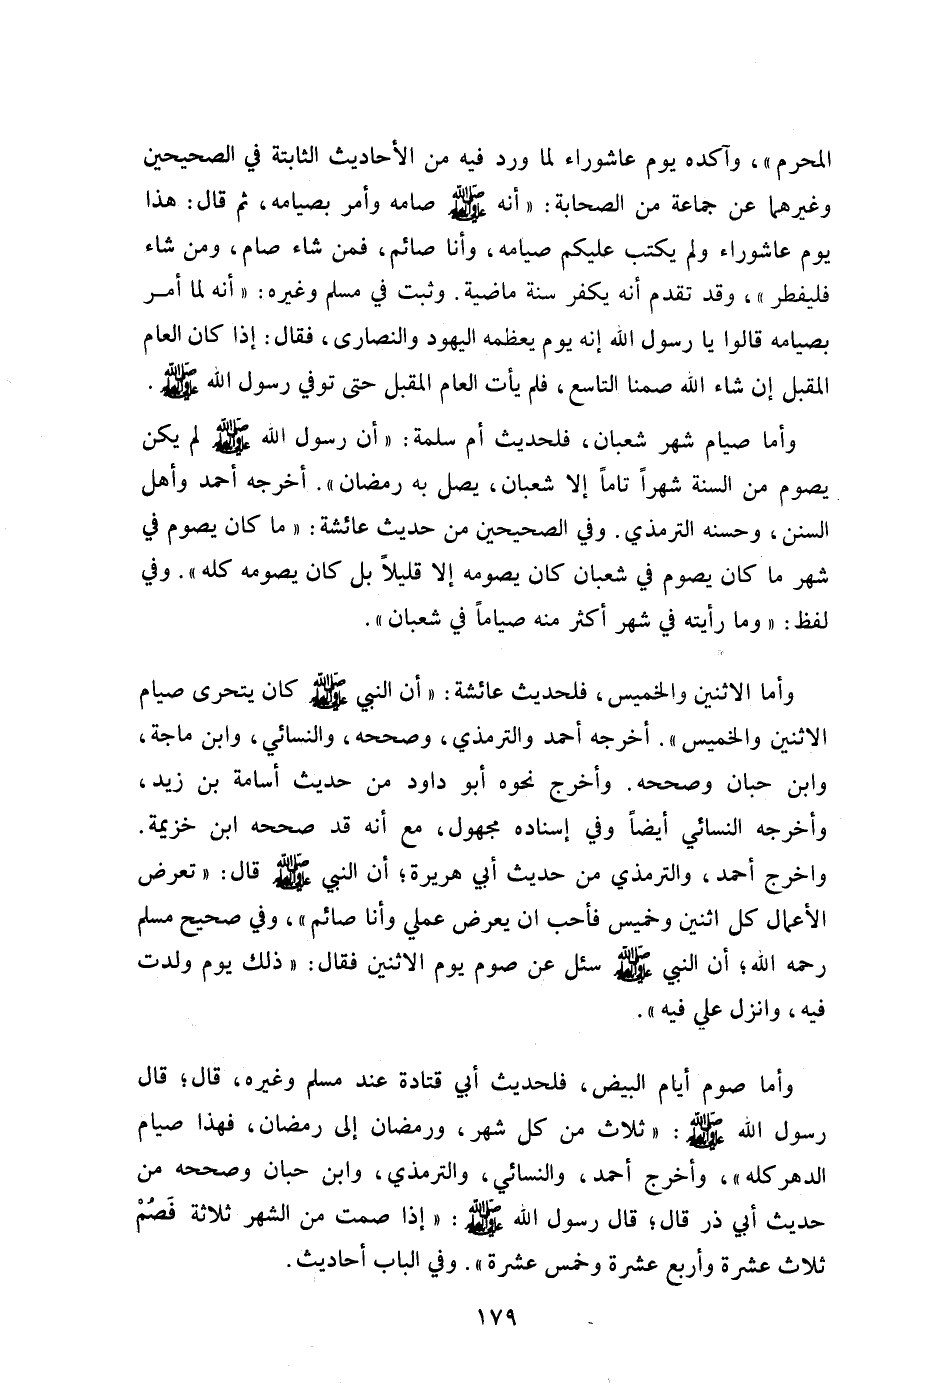 المحرم»، وآكده يوم عاشوراء لما ورد فيه من الأحاديث الثابتة في الصحيحين
وغيرهما عن جماعة من الصحابة: «أنه ﷺ صامه وأمر بصيامه، ثم قال: هذا
يوم عاشوراء ولم يكتب عليكم صيامه، وأنا صائم، فمن شاء صام، ومن شاء
فليفطر»، وقد تقدم أنه يكفر سنة ماضية. وثبت في مسلم وغيره: «أنه لما أمر
بصيامه قالوا يا رسول الله إنه يوم يعظمه اليهود والنصارى، فقال: إذا كان العام
المقبل إن شاء الله صمنا التاسع، فلم يأت العام المقبل حتى توفي رسول الله ﷺ.
وأما صيام شهر شعبان، فلحديث أم سلمة: «أن رسول الله ﷺ لم يكن
يصوم من السنة شهراً تاماً إلا شعبان، يصل به رمضان». أخرجه أحمد وأهل
السنن، وحسنه الترمذي. وفي الصحيحين من حديث عائشة: «ما كان يصوم في
شهر ما كان يصوم في شعبان كان يصومه إلا قليلاً بل كان يصومه كله». وفي
لفظ: «وما رأيته في شهر أكثر منه صياماً في شعبان».
وأما الاثنين والخميس، فلحديث عائشة: «أن النبي ﷺ كان يتحرى صيام
الاثنين والخميس». أخرجه أحمد والترمذي، وصححه، والنسائي، وابن ماجة،
وابن حبان وصححه. وأخرج نحوه أبو داود من حديث أسامة بن زيد،
وأخرجه النسائي أيضاً وفي إسناده مجهول، مع أنه قد صححه ابن خزيمة.
واخرج أحمد، والترمذي من حديث أبي هريرة؛ أن النبي ﷺ قال: «تعرض
الأعمال كل اثنين وخميس فأحب ان يعرض عملي وأنا صائم»، وفي صحيح مسلم
رحمه الله؛ أن النبي ﷺ سئل عن صوم يوم الاثنين فقال: «ذلك يوم ولدت
فيه، وانزل علي فيه».
وأما صوم أيام البيض، فلحديث أبي قتادة عند مسلم وغيره، قال؛ قال
رسول الله ﷺ: «ثلاث من كل شهر، ورمضان إلى رمضان، فهذا صيام
الدهر كله»، وأخرج أحمد، والنسائي، والترمذي، وابن حبان وصححه من
حديث أبي ذر قال؛ قال رسول الله ﷺ: «إذا صمت من الشهر ثلاثة فَصُمْ
ثلاث عشرة وأربع عشرة وخمس عشرة». وفي الباب أحاديث.
١٧٩